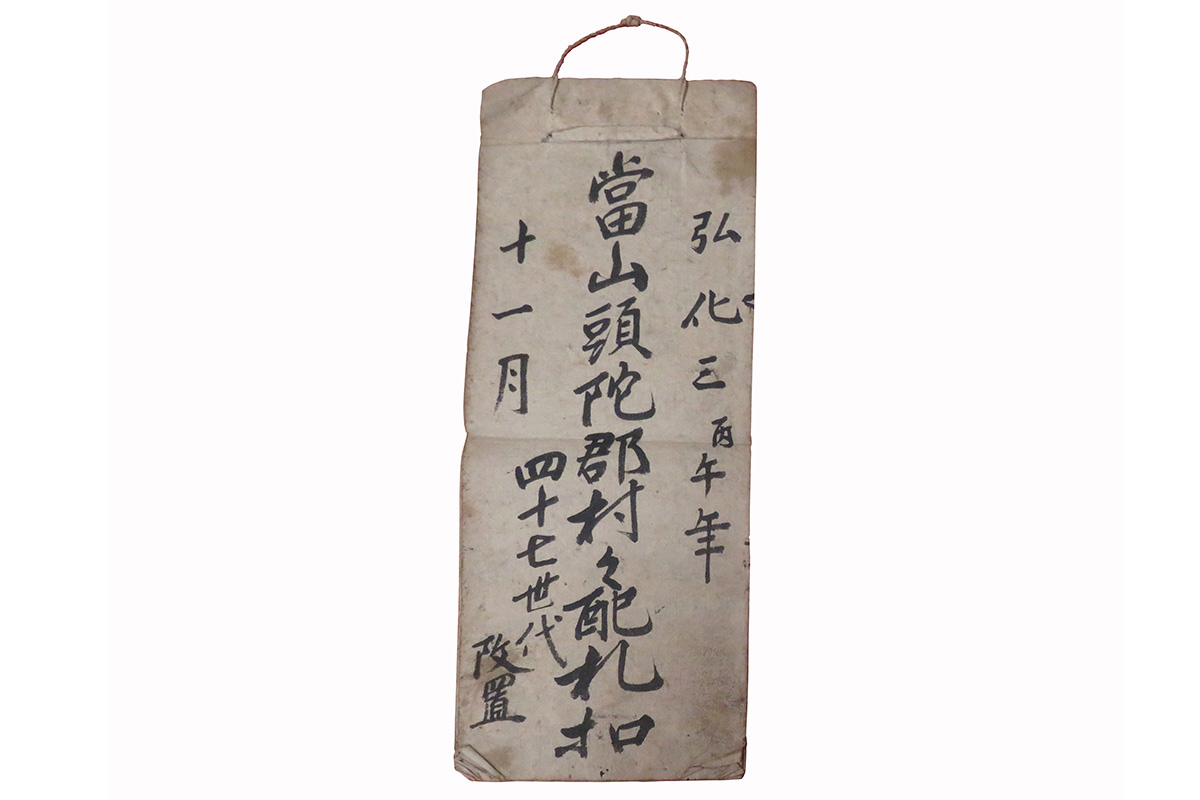 弘化三丙午年
當山頭陀郡村々配札扣
十一月
四十七世代
改置